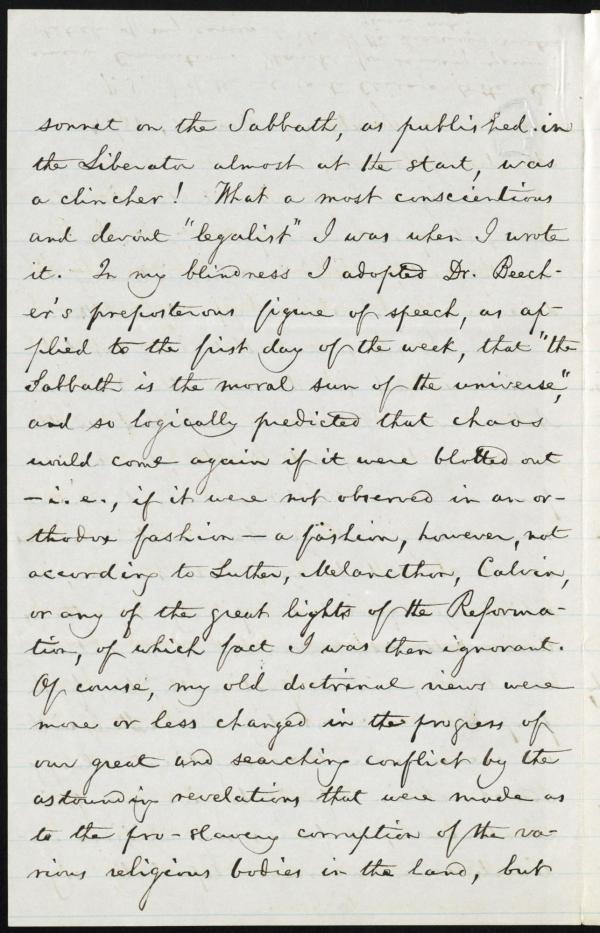 sonnet on the Sabbath, as published in
the Liberator almost at the start, was
a clincher! What a most conscientious
and devout "legalist" I was when I wrote
it. In my blindness I adopted Dr. Beech-
er's preposterous figure of speech, as ap-
plied to the first day of the week, that "the
Sabbath is the moral sun of the universe,"
and so logically predicted that chaos
would come again if it were blotted out
— i. e., if it were not observed in an or-
thodox fashion — a fashion, however, not
according to Luther, Melancthon, Calvin,
or any of the great lights of the Reforma-
tion, of which fact I was then ignorant.
Of course, my old doctrinal views were
more or less changed in the progress of
our great and searching conflict by the
astounding revelations that were made as
to the pro-slavery corruption of the va-
rious religious bodies in the land, but